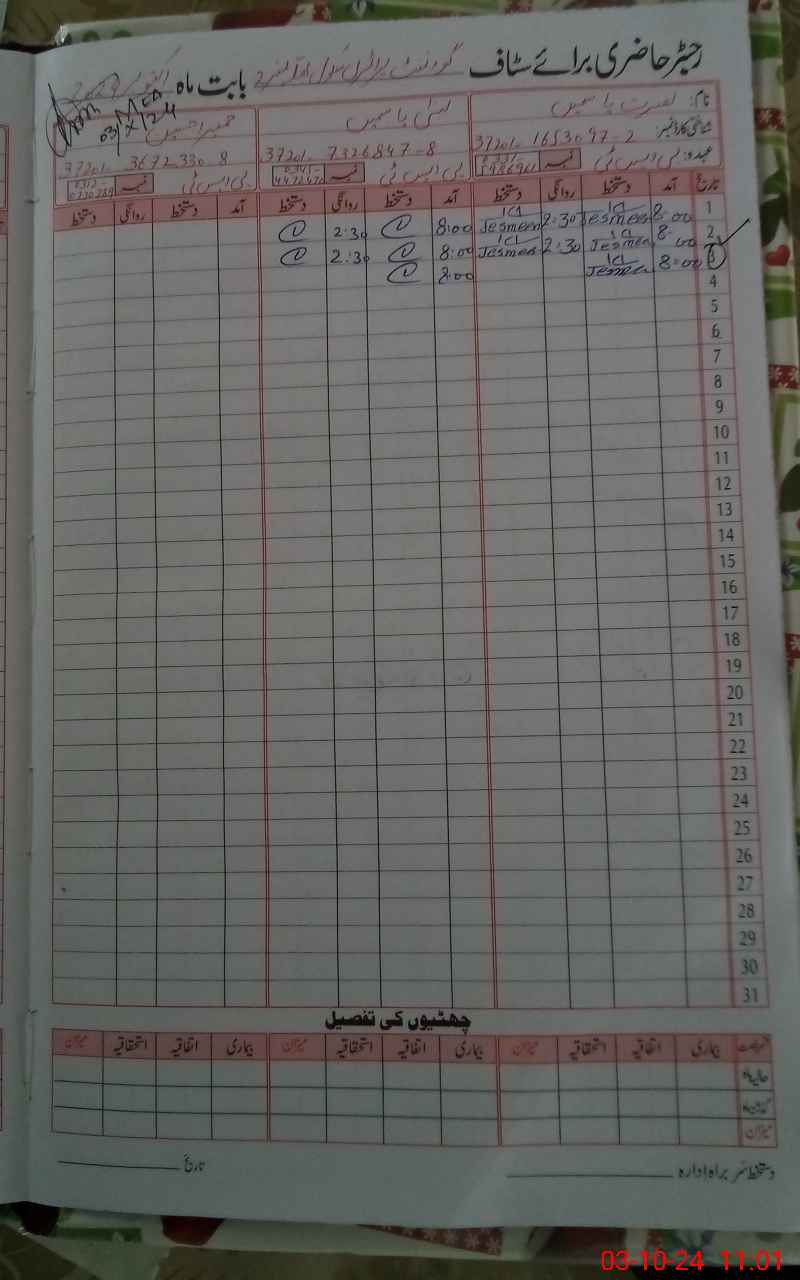 رجسٹر حاضری برائے سٹاف گورنمنٹ پرائمری سکول بابت ماہ اکتوبر
MEA
03/X/24
نام: نصرت یاسمین
لبنیٰ یاسمین
حسین
شناختی کارڈ نمبر: 37201-1653097-2
37201-7326847-8
37201-3672330-8
عہدہ: پی ایس ٹی
پی ایس ٹی نمبر
پی ایس ٹی نمبر
تاریخ آمد دستخط روانگی دستخط آمد دستخط روانگی دستخط آمد دستخط روانگی دستخط
1 8:00 Jesmeen 2:30 Jesmeen 8:00 2:30
2 8:00 Jesmeen 2:30 Jesmeen 8:00 2:30
3 8:00 Jesmeen 8:00
4
5
6
7
8
9
10
11
12
13
14
15
16
17
18
19
20
21
22
23
24
25
26
27
28
29
30
31
چھٹیوں کی تفصیل
بیماری اتفاقیہ استحقاقیہ میزان بیماری اتفاقیہ استحقاقیہ میزان بیماری اتفاقیہ استحقاقیہ میزان
حالیہ ماہ
میزان
دستخط سربراہ ادارہ
تاریخ
03-10-24 11:01